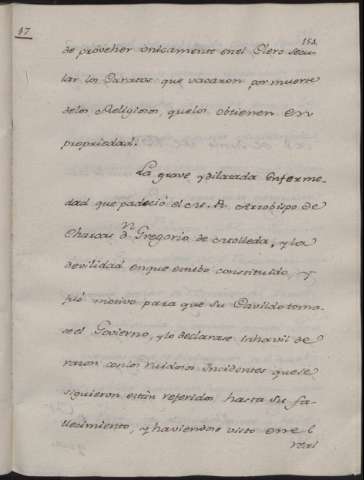 17
151.
de proveher unicamente en el Clero Secu-
lar los Curatos que vacaron por muerte
delos Religiosos, quelos obtienen en
propriedad.
La grave y dilatada enferme-
dad que padeció el M. R. Arzobispo de
Charcas Dn. Gregorio de Molleda, y la
devilidad en que estubo constituido, y
fué motivo para que su Cavildo toma-
se el Govierno, y lo declarase Inhavil de
razon con los ruidosos Incidentes que se
siguieron están referidos hasta su fa-
llecimiento, y haviendose visto en el
real